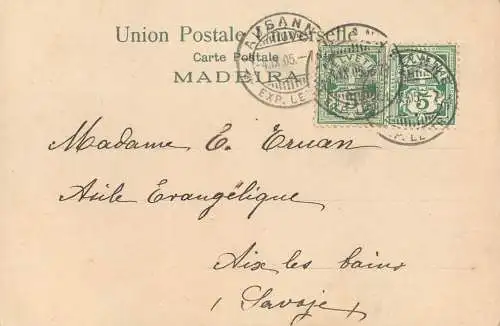 Union Postale Universelle
Carte Postale
MADEIRA
LAUSANNE
IX.05.
EXP. LETT
HELVETIA
5
5
Madame E. Eruan
Asile Evangëlique
Aix les bains
(Savoie)